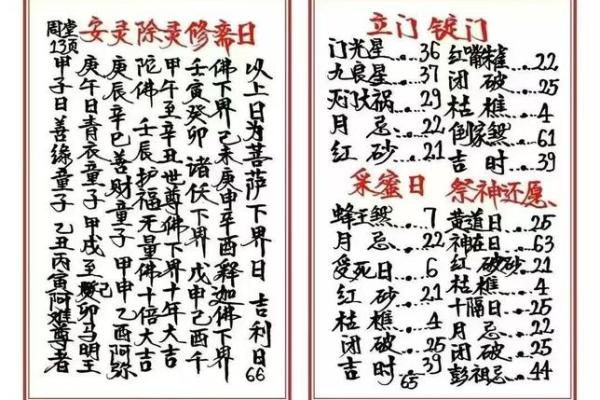 安灵除灵修斋日
周堂
13页
甲子日善缘童子 乙丑丙寅阿难尊者
庚午日青衣童子 甲戌至癸卯马明王
己
庚辰辛巳善财童子 甲申乙酉阿弥
陀佛 壬辰护福无量佛十倍大吉
甲午至辛丑世尊佛下界十年大吉
壬寅癸卯诸伏下界 戊申己酉千
佛下界己未庚申辛酉释迦佛下界
以上日为菩萨下界日 吉利日
66
立门 锭门
门光星...36
九良星...37
灭门大祸...29
月忌...22
红砂...21
红嘴朱雀...22
闭破...25
枯樵...4
倒家煞...61
吉时...39
采蜜日
蜂王煞...7
月忌...22
受死日...6
红砂...21
枯樵...4
闭破...25
吉时...39
65
祭神还愿
黄道日...25
神在日...63
红破砂...21
枯樵...4
十隔日...25
月忌...22
闭破...25
彭祖忌...44